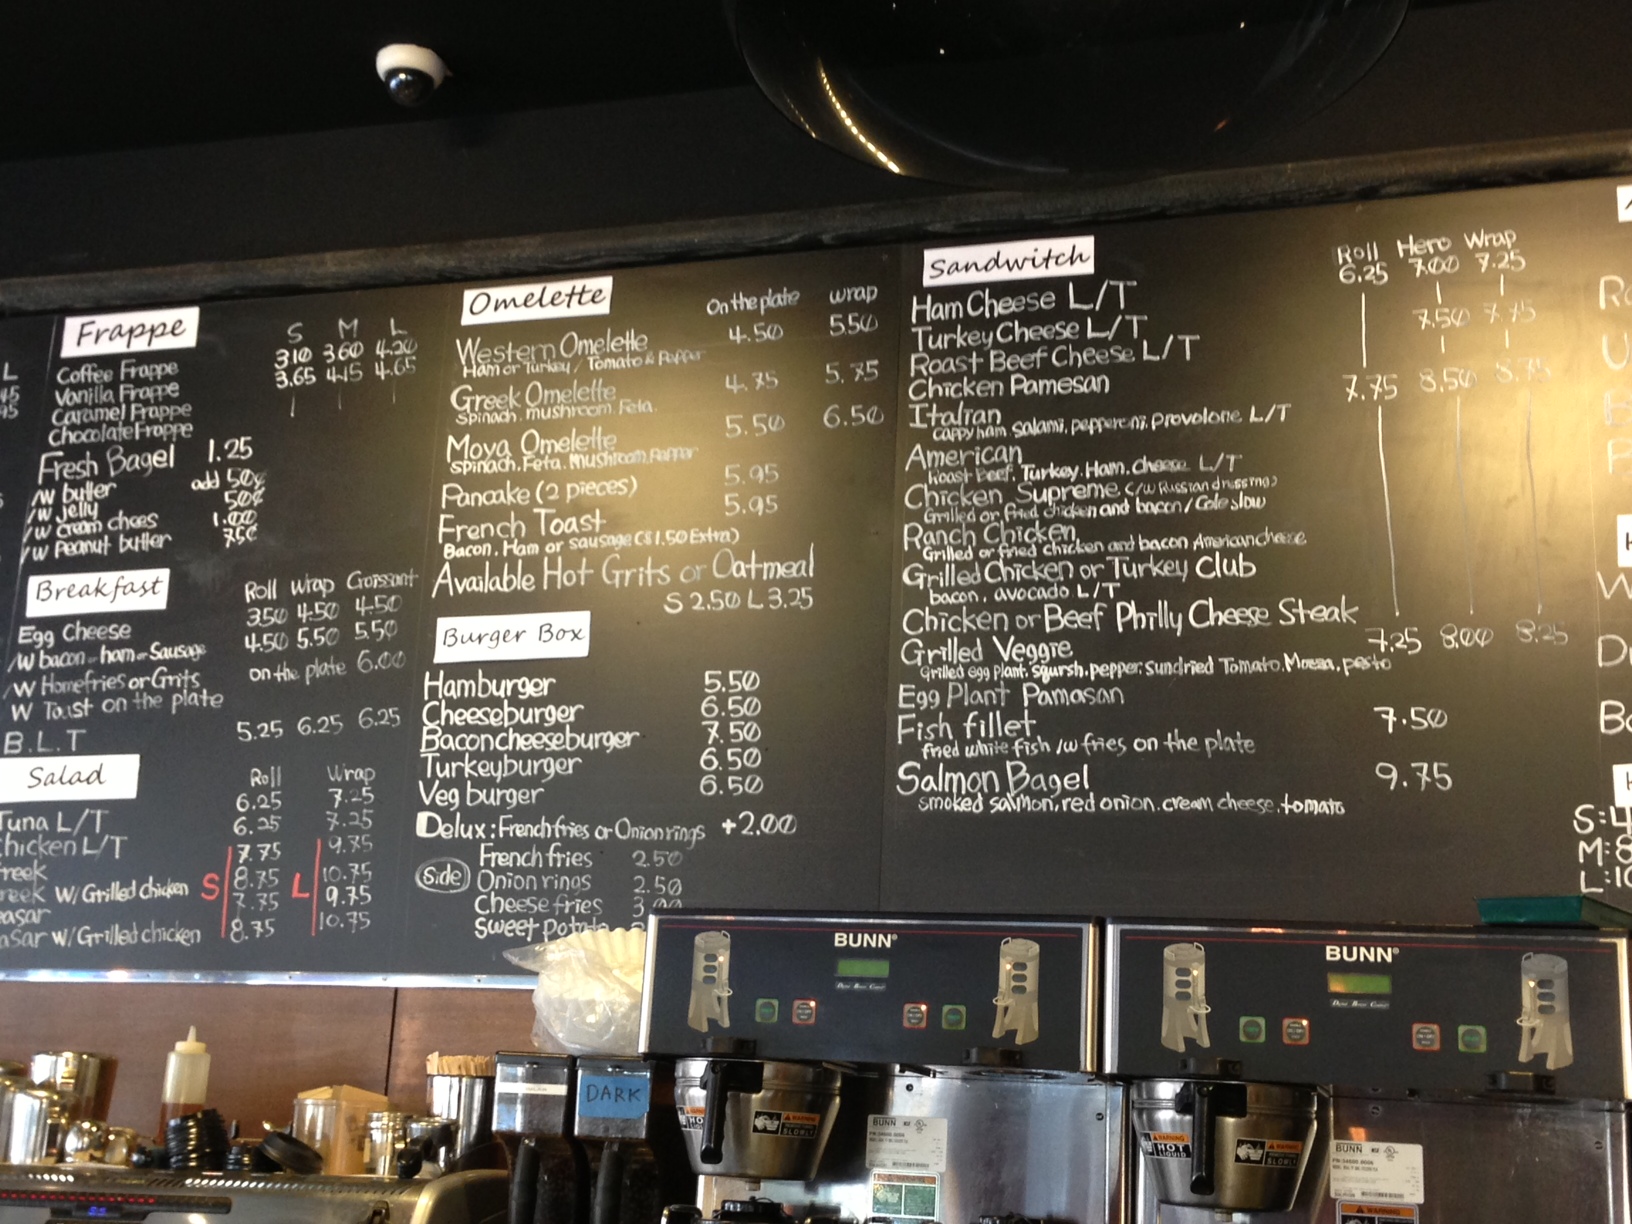 Frappe
S M L
Coffee Frappe 3.10 3.60 4.20
Vanilla Frappe 3.65 4.15 4.65
Caramel Frappe
Chocolate Frappe
Fresh Bagel 1.25
/w butter add 50¢
/w jelly 50¢
/w cream chees 1.00
/w Peanut butter 75¢
Breakfast
Roll Wrap Croissant
Egg Cheese 3.50 4.50 4.50
/w bacon or ham or Sausage 4.50 5.50 5.50
/W Homefries or Grits on the plate 6.00
W Toast on the plate
B.L.T 5.25 6.25 6.25
Salad
Roll Wrap
Tuna L/T 6.25 7.25
hicken L/T 6.25 7.25
reek 7.75 9.75
reek W/ Grilled chicken S 8.75 L 10.75
easar 7.75 9.75
asar w/ Grilled chicken 8.75 10.75
Omelette
On the plate wrap
Western Omelette 4.50 5.50
Ham or Turkey / Tomato & Pepper
Greek Omelette 4.75 5.75
Spinach. mushroom. Feta.
Moya Omelette 5.50 6.50
Spinach. Feta. Mushroom. Pepper
Pancake (2 pieces) 5.95
French Toast 5.95
Bacon. Ham or sausage ($1.50 Extra)
Available Hot Grits or Oatmeal
S 2.50 L 3.25
Burger Box
Hamburger 5.50
Cheeseburger 6.50
Baconcheeseburger 7.50
Turkeyburger 6.50
Veg burger 6.50
Delux: French fries or Onion rings +2.00
Side
French fries 2.50
Onion rings 2.50
Cheese fries 3.00
Sweet Potato
Sandwitch
Roll Hero Wrap
6.25 7.00 7.25
Ham Cheese L/T
Turkey Cheese L/T 7.50 7.75
Roast Beef Cheese L/T
Chicken Pamesan 7.75 8.50 8.75
Italian
cappy ham. salami. pepperoni. provolone L/T
American
Roast Beef. Turkey. Ham. cheese L/T
Chicken Supreme (/w Russian dressing)
Grilled or fried chicken and bacon / Cole slow
Ranch Chicken
Grilled or fried chicken and bacon American cheese
Grilled Chicken or Turkey Club
bacon, avocado L/T
Chicken or Beef Philly Cheese Steak
Grilled Veggie 7.25 8.00 8.25
grilled egg plant. sqursh. pepper. sundried Tomato. pesto
Egg Plant Pamasan
Fish fillet 7.50
fried white fish /w fries on the plate
Salmon Bagel 9.75
smoked salmon, red onion. cream cheese. tomato
S:4
M:8
BUNN
BUNN
DARK
WARNING
HOT LIQUID
BUNN
BUNN
WARNING